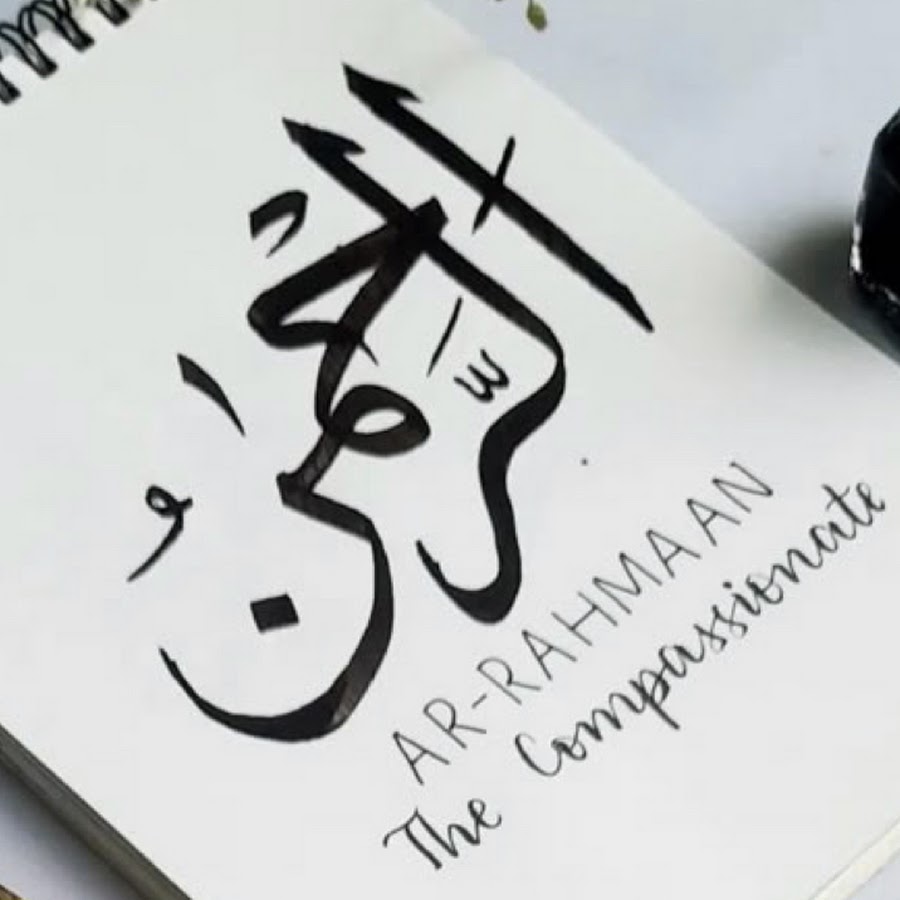 الرَّحْمٰنُ
AR-RAHMAAN
The Compassionate